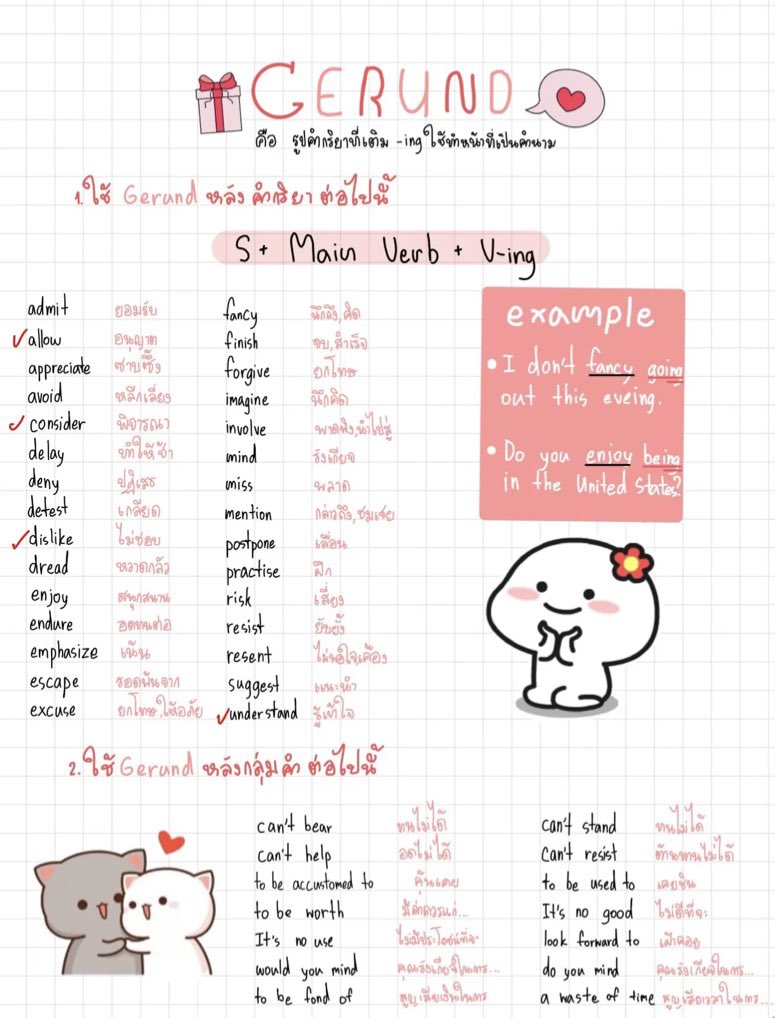 GERUND
คือ รูปคำกริยาที่เติม -ing ใช้ทำหน้าที่เป็นคำนาม
1. ใช้ Gerund หลัง คำกริยา ต่อไปนี้
S + Main Verb + V-ing
admit ยอมรับ
allow อนุญาต
appreciate ซาบซึ้ง
avoid หลีกเลี่ยง
consider พิจารณา
delay ทำให้ช้า
deny ปฏิเสธ
detest เกลียด
dislike ไม่ชอบ
dread หวาดกลัว
enjoy สนุกสนาน
endure อดทนต่อ
emphasize เน้น
escape รอดพ้นจาก
excuse ยกโทษ,ให้อภัย
fancy นึกถึง,คิด
finish จบ,สำเร็จ
forgive ยกโทษ
imagine นึกคิด
involve พาดพิง,นำไปสู่
mind รังเกียจ
miss พลาด
mention กล่าวถึง,ชมเชย
postpone เลื่อน
practise ฝึก
risk เสี่ยง
resist ยับยั้ง
resent ไม่พอใจ,เคือง
suggest แนะนำ
understand รู้,เข้าใจ
example
• I don't fancy going
out this eveing.
• Do you enjoy being
in the United States?
2. ใช้ Gerund หลังกลุ่มคำ ต่อไปนี้
can't bear ทนไม่ได้
can't help อดไม่ได้
to be accustomed to คุ้นเคย
to be worth มีค่าควรแก่...
It's no use ไม่มีประโยชน์ที่จะ
would you mind คุณรังเกียจในการ...
to be fond of สูญเสียเงินในการ
can't stand ทนไม่ได้
can't resist ต้านทานไม่ได้
to be used to เคยชิน
It's no good ไม่ดีที่จะ
look forward to เฝ้าคอย
do you mind คุณรังเกียจในการ...
a waste of time สูญเสียเวลาในการ...